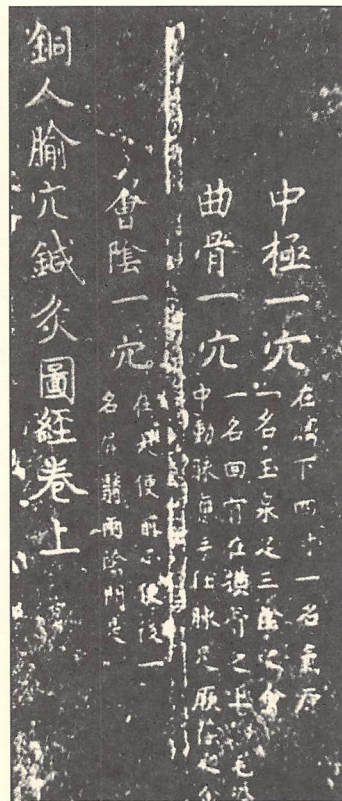 中極一穴 在臍下四寸一名氣原
一名玉泉足三陰之會
曲骨一穴 一名回骨在橫骨之上毛際
中動脈 任脈足厥陰之會
會陰一穴 在大便前小便後一
名屏翳兩陰間是
銅人腧穴鍼灸圖經卷上